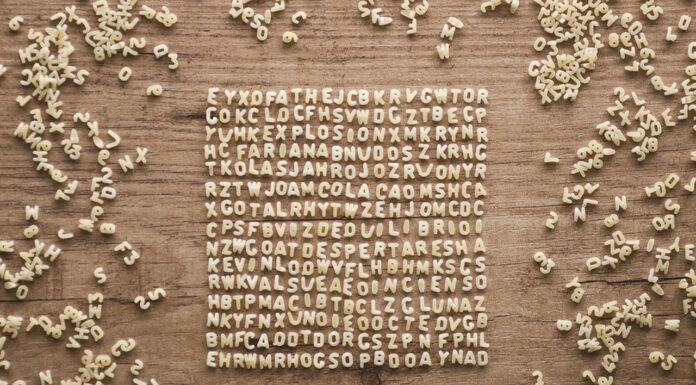 EYXDFATHEJCBKRVGWTOR
GOKCLDCFHSVWDGZTBECP
YUHKEXPLOSIONXMKRYNR
HCFARIANABNUDOSZKRHG
TKOLASJAHROJZRVONYR
RZTWJOAMCOLACAOMSHCA
XGOTALRHYTWZEHJOMCDC
CPSFBVIZDEQUILIBRIOI
NZWGOATDESPERTARESHA
KEVINLODWYFLHBHMKSGS
RWKVALSUEAEOINCIENSO
HBTPMACIBTDCLZGLUNAZ
NKYFNXUNOIEOOCTEDVGB
BMFCAODTDORGSZPNFPHL
EHRWMRHOGSOPBDOAYNAD